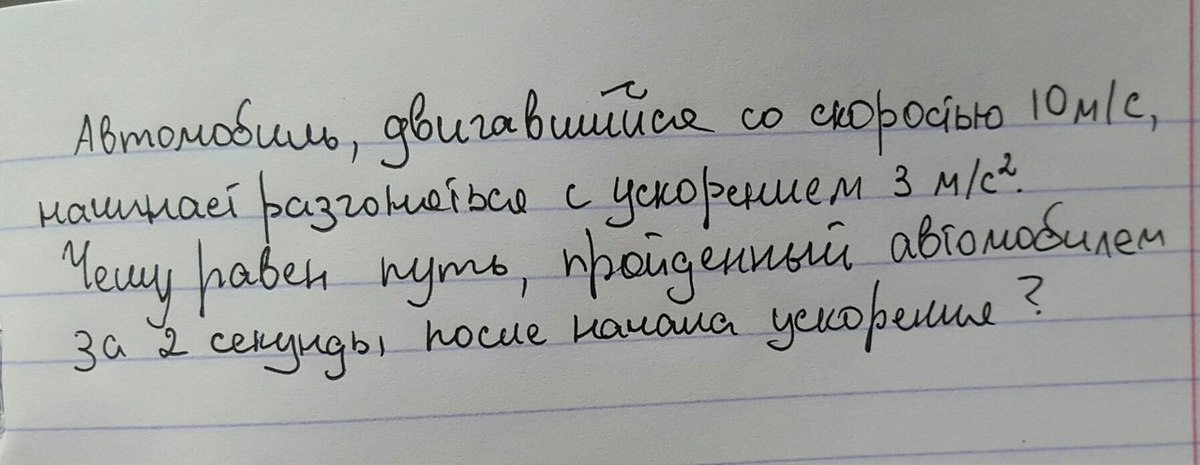 Автомобиль, двигавшийся со скоростью 10 м/с,
начинает разгоняться с ускорением 3 м/с².
Чему равен путь, пройденный автомобилем
за 2 секунды, после начала ускорения?